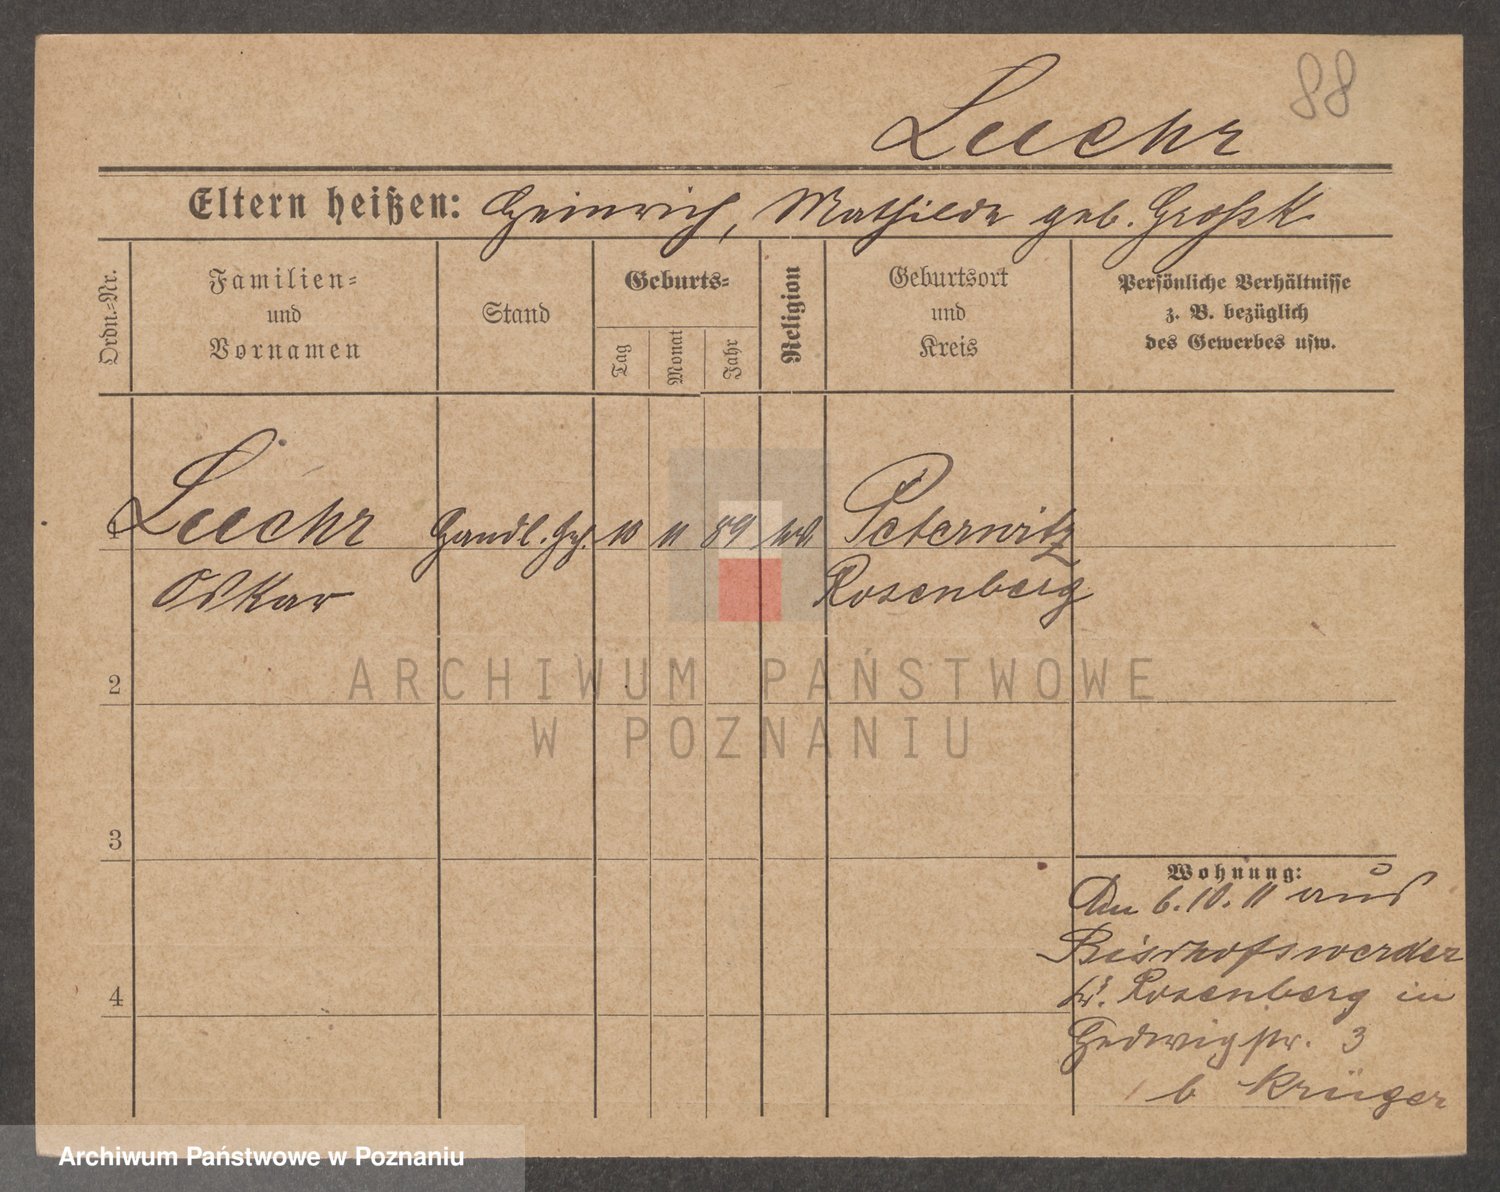 88
Luehr
Eltern heißen: Heinrich, Mathilde geb.
Ordn.=Nr.
Familien=
und
Vornamen
Stand
Geburts=
Tag
Monat
Jahr
Religion
Geburtsort
und
Kreis
Persönliche Verhältnisse
z. B. bezüglich
des Gewerbes usw.
1 Luehr Handl. Geh. 10 11 89 Peterwitz
Oskar Rosenberg
2
ARCHIWUM PAŃSTWOWE
W POZNANIU
3
Wohnung:
Am 6.10.11 aus
Bischofswerder
Kr. Rosenberg in
Hedwigstr. 3
b Krüger
4
Archiwum Państwowe w Poznaniu